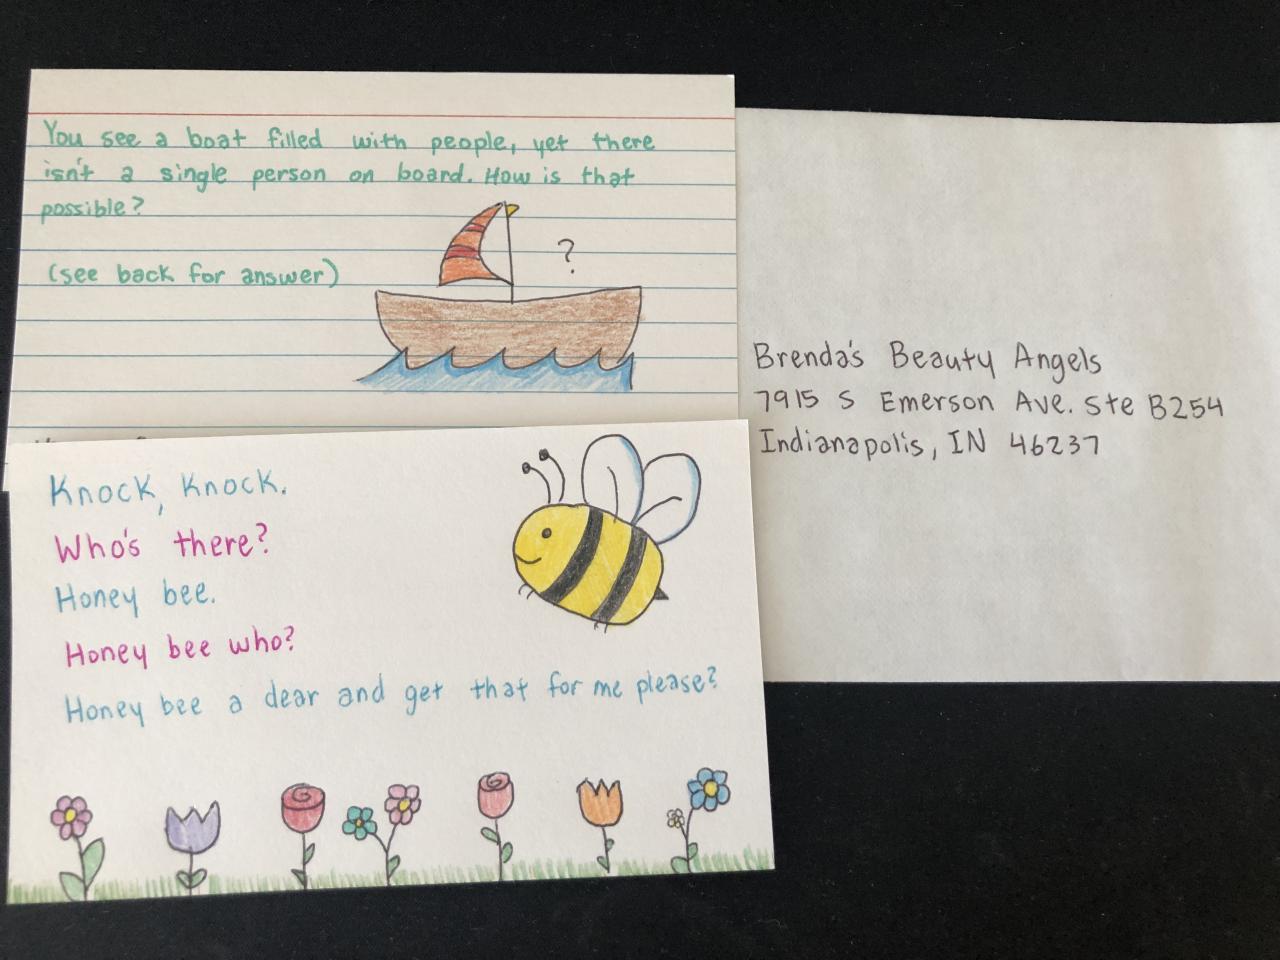 You see a boat filled with people, yet there
isn't a single person on board. How is that
possible?
?
(see back for answer)
Knock, Knock.
Who's there?
Honey bee.
Honey bee who?
Honey bee a dear and get that for me please?
Brenda's Beauty Angels
7915 S Emerson Ave. Ste B254
Indianapolis, IN 46237